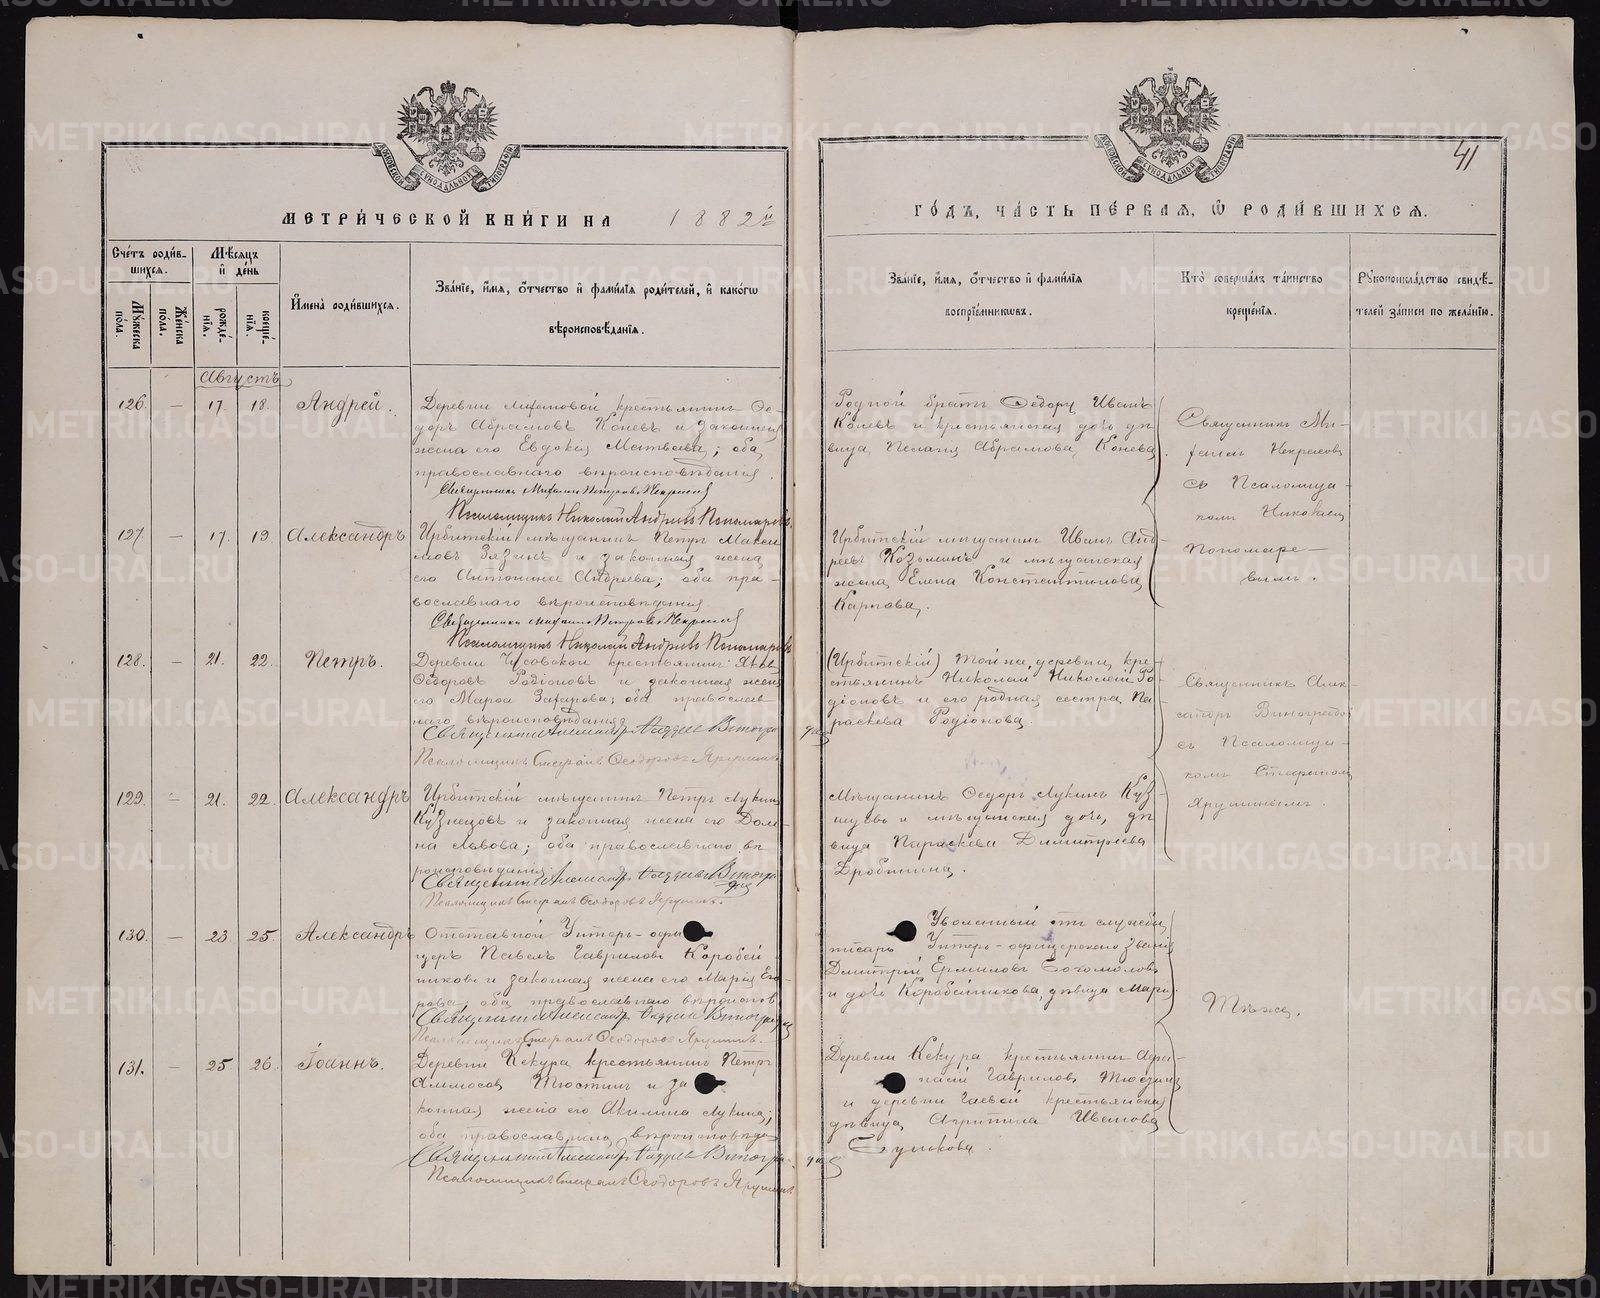 МЕТРИ́ЧЕСКОЙ КНИ́ГИ НА 1882й
ГО́ДЪ, ЧА́СТЬ ПЕ́РВАЯ, Ѡ РОДИ́ВШИХСЯ.
41
Сче́тъ роди́в-
шихся.
Мѣ́сяцъ
и де́нь
Мꙋжеска
по́ла.
Же́нска
по́ла.
рожде́-
нія.
креще́-
нія.
И́мена роди́вшихся.
Зва́нїе, и́мя, о́тчество и фами́лїя роди́телей, и како́гѡ
вѣроисповѣ́данїя.
Зва́нїе, и́мя, о́тчество и фами́лїя
воспрїе́мникѡвъ.
Кто̀ соверша́лъ та́инство
креще́нїя.
Рꙋкоприкла́дство свидѣ́-
телей за́писи по жела́нїю.
Августъ
126. — 17. 18. Андрей.
Деревни крестьянинъ Ѳе-
доръ Абрамовъ Коневъ и законная
жена его Евдокія Матвеева; оба
православнаго вѣроисповѣданія.
Священникъ Михаилъ Петровъ Некрасовъ
Псаломщикъ Николай Андреевъ Пономаревъ
Родной братъ Ѳедору Иванъ
Коневъ и крестьянская дочь дѣ-
вица Пелагія Абрамова Конева.
Священникъ Ми-
хаилъ Некрасовъ
съ Псаломщи-
комъ Николаемъ
Пономаре-
вымъ.
127. — 17. 19. Александръ
Ирбитскій мѣщанинъ Петръ Макси-
мовъ Зязинъ и законная жена
его Антонина Андреева; оба пра-
вославнаго вѣроисповѣданія
Священникъ Михаилъ Петровъ Некрасовъ
Псаломщикъ Николай Андреевъ Пономаревъ
Ирбитскій мѣщанинъ Иванъ Анд-
реевъ Козьминъ и мѣщанская
жена Елена Константинова
Карпова.
128. — 21. 22. Петръ.
Деревни крестьянинъ Яковъ
Ѳедоровъ Родіоновъ и законная жена
его Марѳа Захарова; оба православ-
наго вѣроисповѣданія
Священникъ Александръ Ѳаддеевъ Виногра-
довъ
Псаломщикъ Стефанъ Ѳеодоровъ Ярушинъ
(Ирбитскій) Той же деревни кре-
стьянинъ Николай Николаевъ Ро-
діоновъ и его родная сестра Па-
раскева Родіонова.
Священникъ Алек-
сандръ Виноградовъ
съ Псаломщи-
комъ Стефаномъ
Ярушинымъ.
129. — 21. 22. Александръ
Ирбитскій мѣщанинъ Петръ Лукинъ
Кузнецовъ и законная жена его Дом-
на Львова; оба православнаго вѣ-
роисповѣданія
Священникъ Александръ Ѳаддеевъ Виногра-
довъ
Псаломщикъ Стефанъ Ѳеодоровъ Ярушинъ.
Мѣщанинъ Ѳедоръ Лукинъ Куз-
нецовъ и мѣщанская дочь, дѣ-
вица Параскева Димитріева
Дробинина.
130. — 23 25. Александръ
Отставной Унтеръ-офи-
церъ Павелъ Гавриловъ Коробей-
никовъ и законная жена его Марія Его-
рова; оба православнаго вѣроиспов.
Священникъ Александръ Ѳаддеевъ Виноградовъ
Псаломщикъ Стефанъ Ѳеодоровъ Ярушинъ.
Уволенный отъ службы
писарь Унтеръ-офицерскаго званія
Дмитрій Ермиловъ Богомоловъ
и дочь Коробейникова, дѣвица Марія.
Тѣже.
131. — 25 26. Іоаннъ.
Деревни Кекура крестьянинъ Петръ
Тюстинъ и за-
конная жена его Акилина Лукина;
оба православнаго вѣроисповѣда-
Священникъ Александръ Ѳаддеевъ Виногра-
довъ
Псаломщикъ Стефанъ Ѳеодоровъ Ярушинъ
Деревни Кекура крестьянинъ Аѳа-
насій Гавриловъ
и деревни Гаевой крестьянская
дѣвица Агрипина Иванова